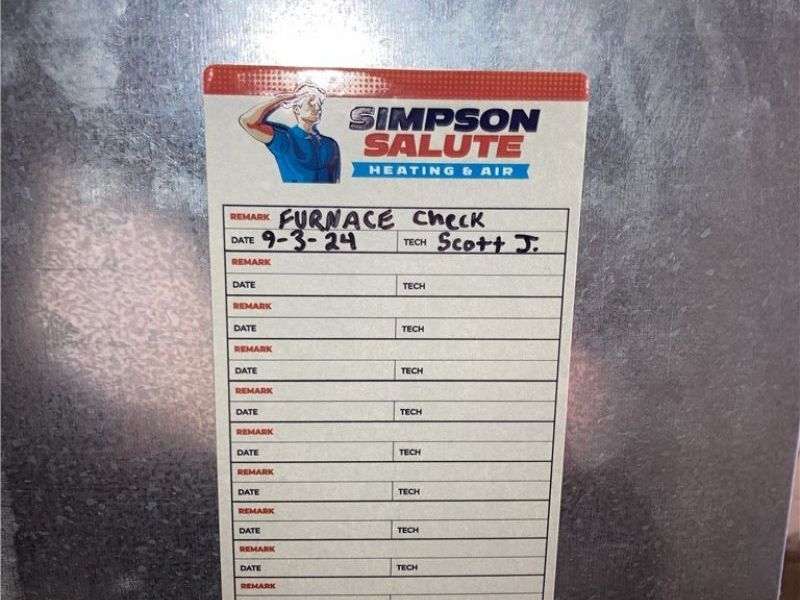 SIMPSON
SALUTE
HEATING & AIR
REMARK FURNACE Check
DATE 9-3-24 TECH Scott J.
REMARK
DATE TECH
REMARK
DATE TECH
REMARK
DATE TECH
REMARK
DATE TECH
REMARK
DATE TECH
REMARK
DATE TECH
REMARK
DATE TECH
REMARK
DATE TECH
REMARK